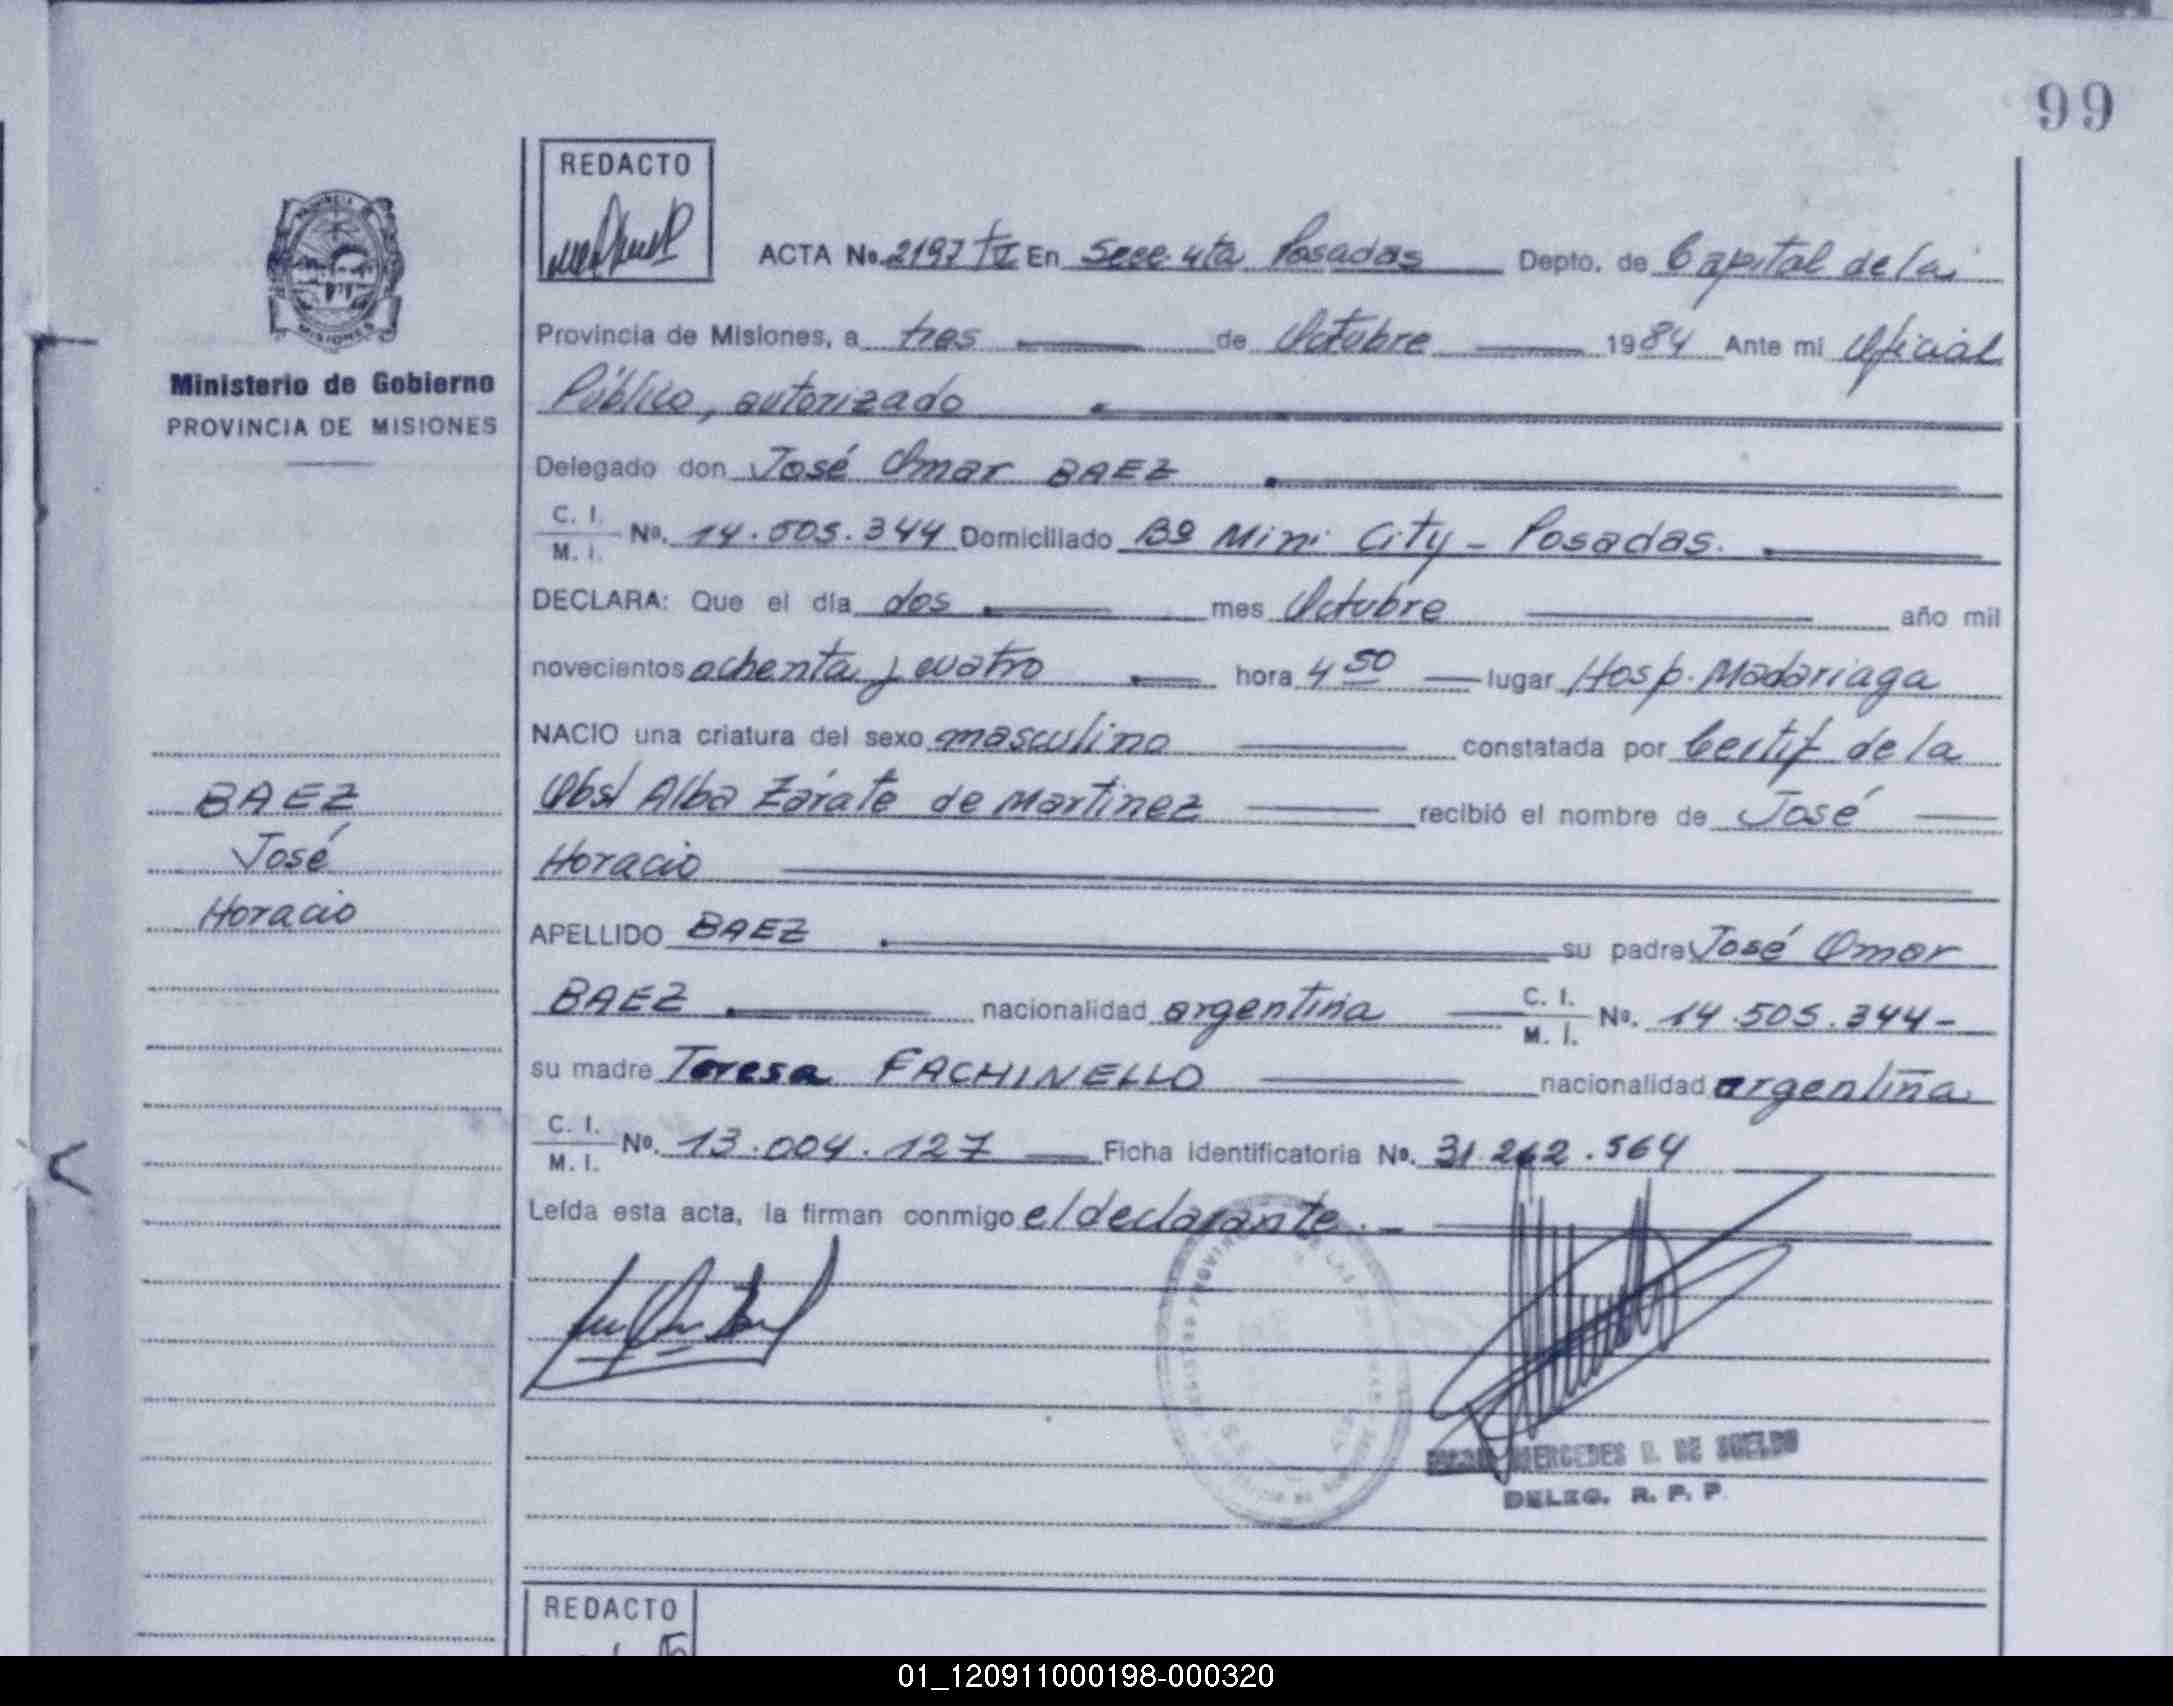 99
REDACTO
ACTA No. 2197 En Secc. 4ta. Posadas Depto. de Capital de la
Provincia de Misiones, a tres de Octubre 1984 Ante mi Oficial
Público, autorizado
Ministerio de Gobierno
PROVINCIA DE MISIONES
Delegado don José Omar BAEZ
C. I.
M. I. No. 14.505.344 Domiciliado Bº Mini City - Posadas.
DECLARA: Que el día dos mes Octubre año mil
novecientos ochenta y cuatro hora 4 50 lugar Hosp. Madariaga
NACIO una criatura del sexo masculino constatada por Certif de la
Obst Alba Zárate de Martinez recibió el nombre de José
Horacio
BAEZ
José
Horacio
APELLIDO BAEZ su padre José Omar
BAEZ nacionalidad argentina C. I.
M. I. No. 14.505.344-
su madre Teresa FACHINELLO nacionalidad argentina
C. I.
M. I. No. 13.004.127 Ficha identificatoria No. 31.262.564
Leída esta acta, la firman conmigo el declarante.-
MERCEDES DE SUELDO
DELEG. R. P. P.
REDACTO
01_120911000198-000320